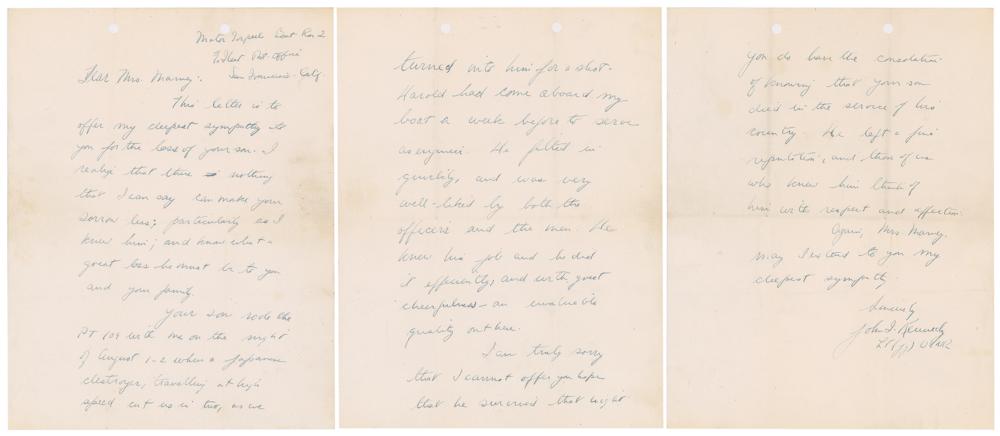 Motor Torpedo Boat Ron 2
℅ Fleet Post Office
San Francisco - Calif.
Dear Mrs. Marney:
This letter is to
offer my deepest sympathy to
you for the loss of your son. I
realize that there is nothing
that I can say can make your
sorrow less; particularly as I
knew him; and know what a
great loss he must be to you
and your family.
Your son rode the
PT 109 with me on the night
of August 1-2 when a Japanese
destroyer, travelling at high
speed cut us in two, as we
turned into him for a shot.
Harold had come aboard my
boat a week before to serve
as engineer. He fitted in
quickly, and was very
well-liked by both the
officers and the men. He
knew his job and he did
it efficiently, and with great
cheerfulness - an invaluable
quality out here.
I am truly sorry
that I cannot offer you hope
that he survived that night
you do have the consolation
of knowing that your son
died in the service of his
country. He left a fine
reputation, and those of us
who knew him think of
him with respect and affection.
Again, Mrs. Marney
may I extend to you my
deepest sympathy.
Sincerely
John F. Kennedy
Lt. (jg) USNR